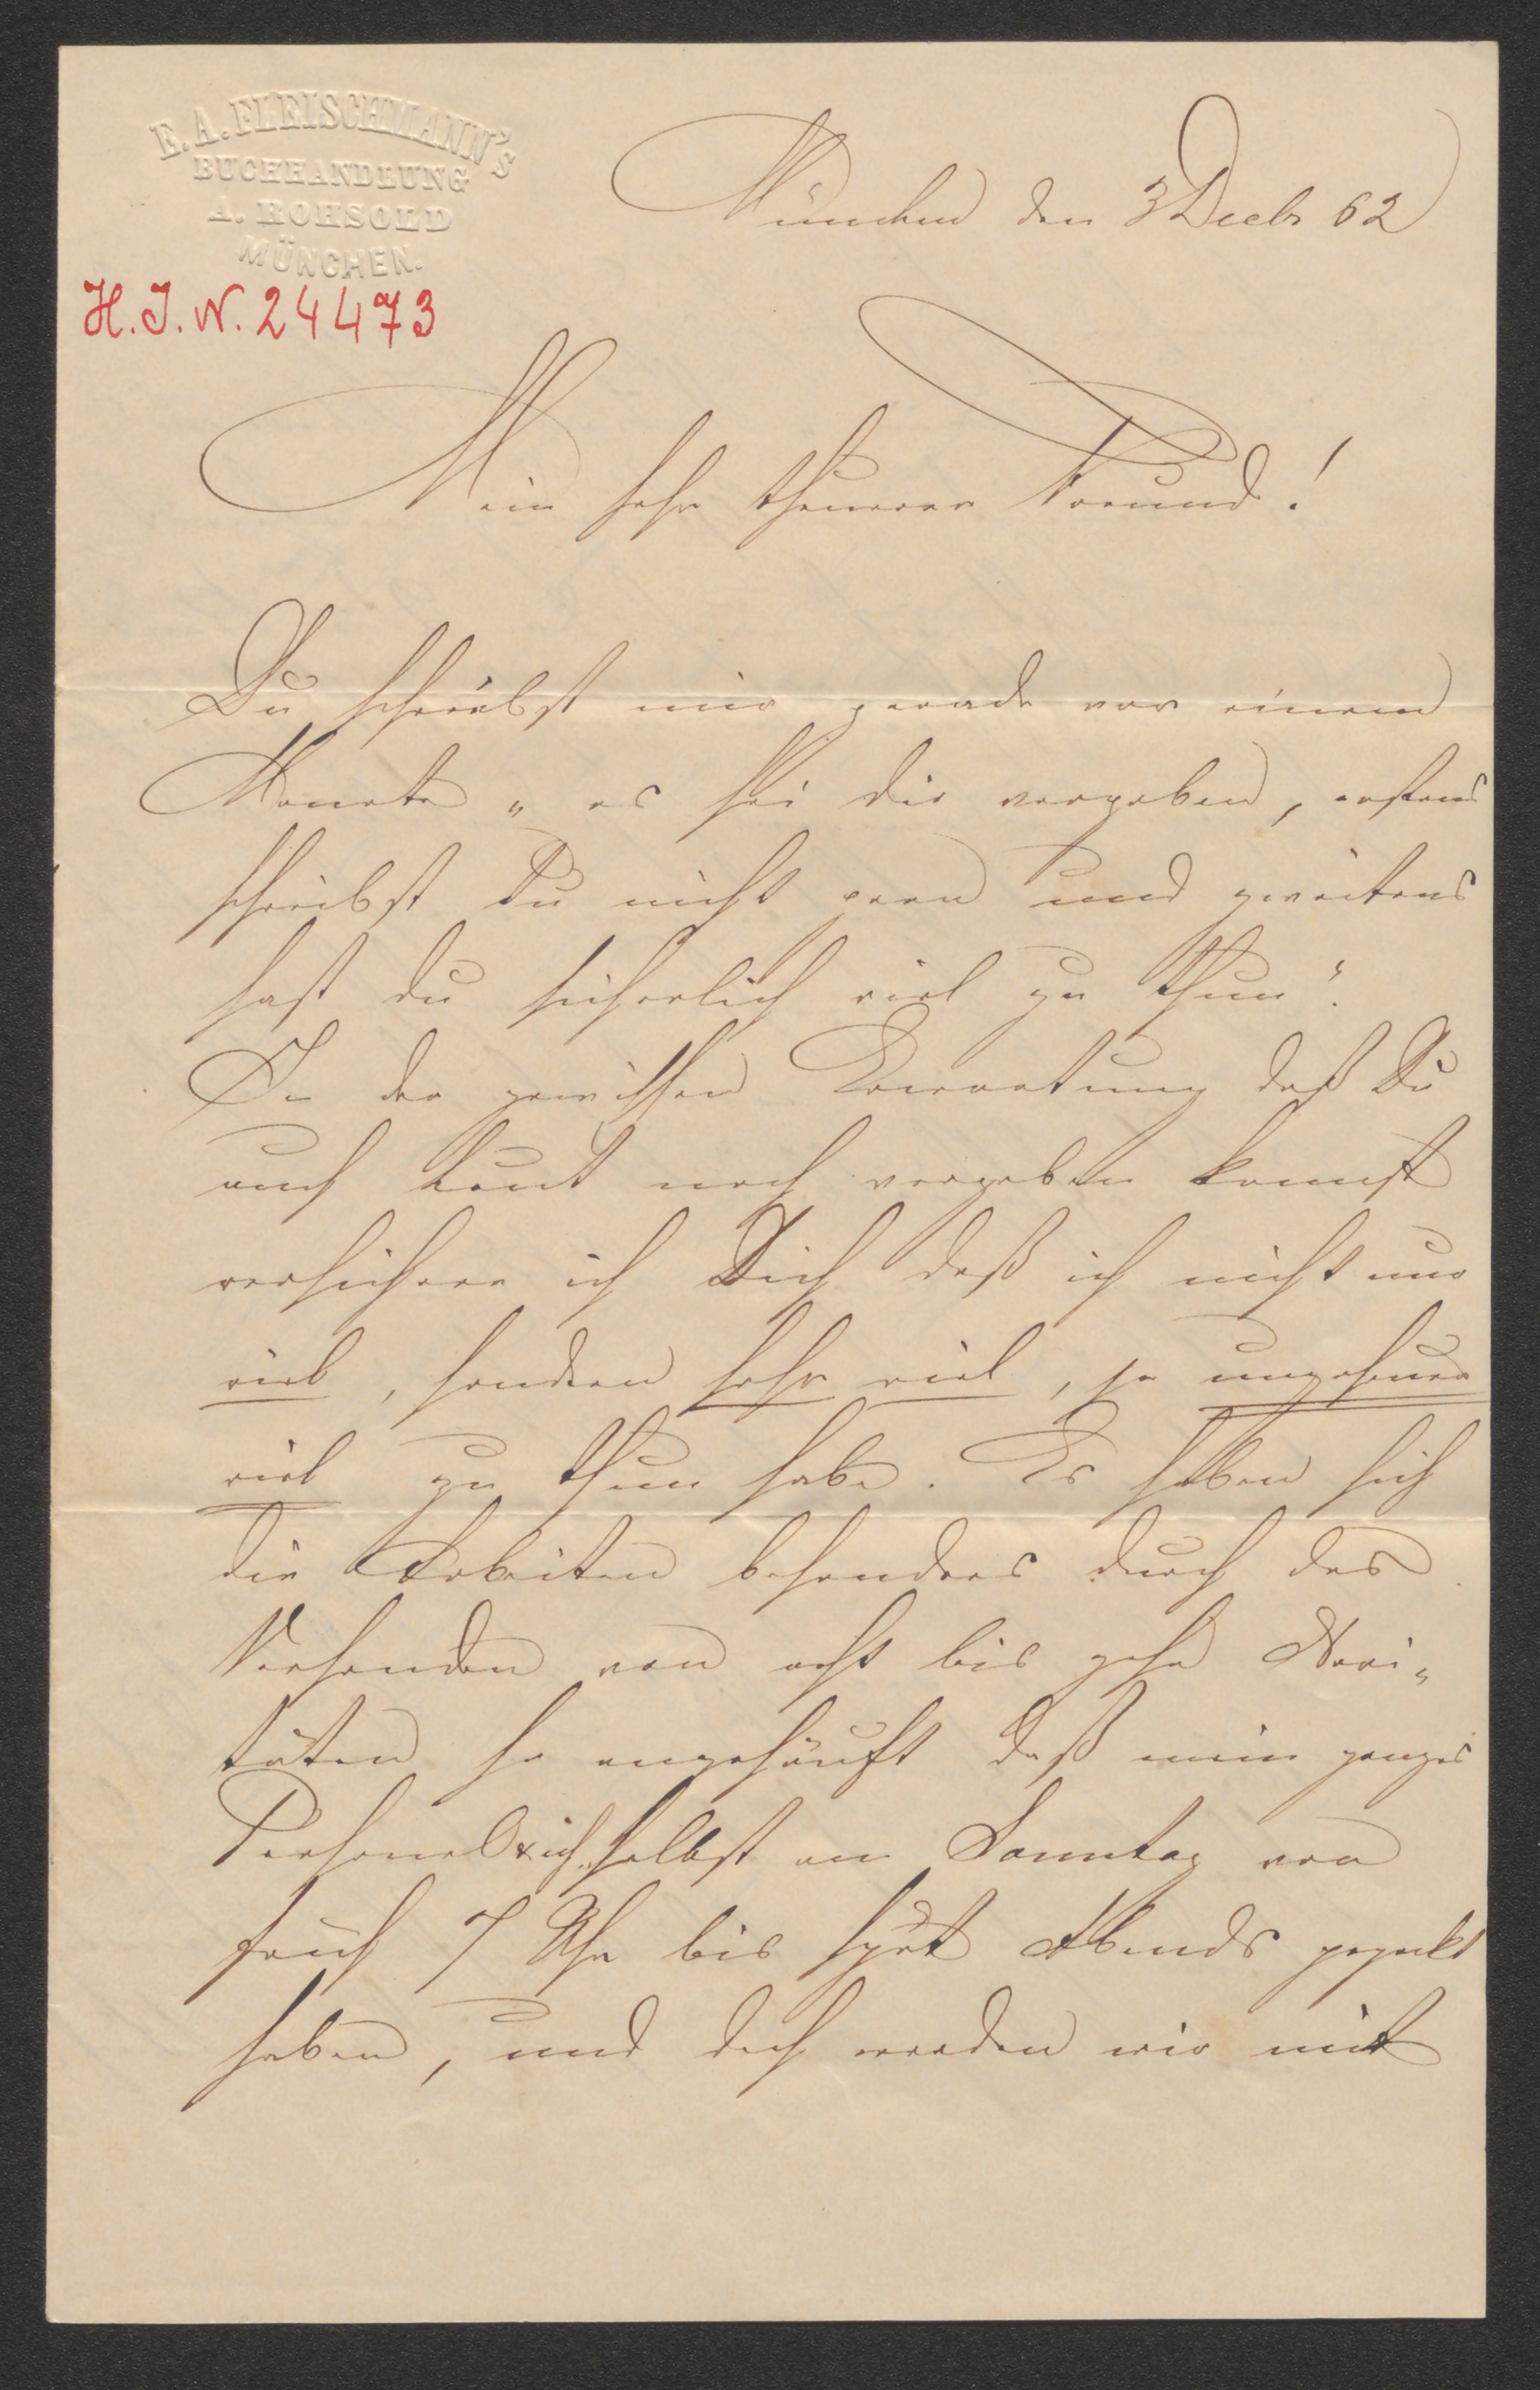 E. A. FLEISCHMANN'S
BUCHHANDLUNG
A. ROHSOLD
MÜNCHEN.
H. J. N. 24473
München den 3 Decbr 62
Mein sehr theurer Freund!
Du schreibst mir gerade vor einem
Monate „es sei dir vergeben, erstens
schreibst Du nicht gern und zweitens
hast du sicherlich viel zu thun“.
In der gewissen Erwartung daß Du
auch heut noch vergeben kannst
versichere ich Dich daß ich nicht nur
viel, sondern sehr viel, ja ungeheuer
viel zu thun habe. Es haben sich
die Arbeiten besonders durch das
Versenden von acht bis zehn Novi-
täten so angehäuft daß mein ganzes
Personal & ich selbst am Sonntag von
früh 7 Uhr bis spät Abends gepackt
haben, und doch werden wir mit